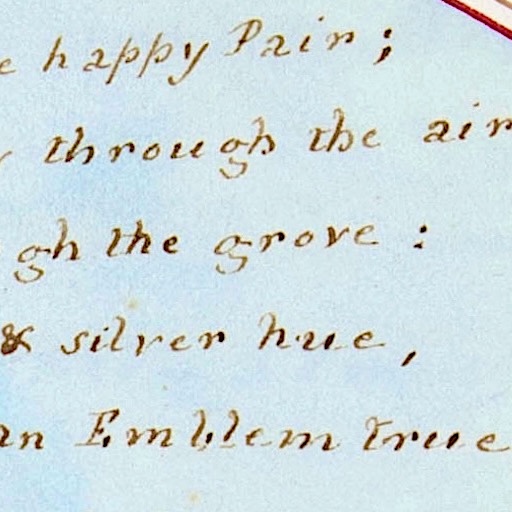 e happy Pair;
through the air
gh the grove:
& silver hue,
an Emblem true